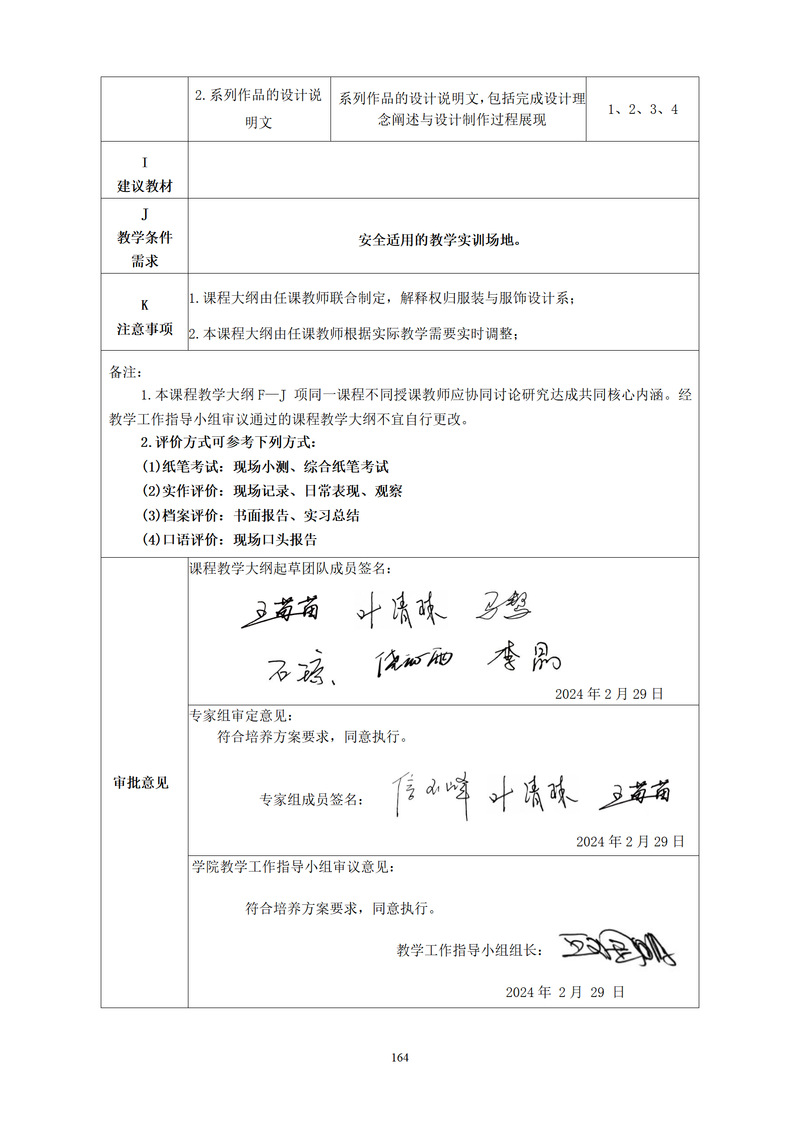 2.系列作品的设计说
明文
系列作品的设计说明文,包括完成设计理
念阐述与设计制作过程展现
1、2、3、4
I
建议教材
J
教学条件
需求
安全适用的教学实训场地。
K
注意事项
1.课程大纲由任课教师联合制定，解释权归服装与服饰设计系；
2.本课程大纲由任课教师根据实际教学需要实时调整；
备注：
1.本课程教学大纲 F—J 项同一课程不同授课教师应协同讨论研究达成共同核心内涵。经
教学工作指导小组审议通过的课程教学大纲不宜自行更改。
2.评价方式可参考下列方式：
(1)纸笔考试：现场小测、综合纸笔考试
(2)实作评价：现场记录、日常表现、观察
(3)档案评价：书面报告、实习总结
(4)口语评价：现场口头报告
审批意见
课程教学大纲起草团队成员签名：
王苗苗 叶清珠
石琼 李晶
2024 年 2 月 29 日
专家组审定意见：
符合培养方案要求，同意执行。
专家组成员签名：
叶清珠 王苗苗
2024 年 2 月 29 日
学院教学工作指导小组审议意见：
符合培养方案要求，同意执行。
教学工作指导小组组长：
2024 年 2 月 29 日
164